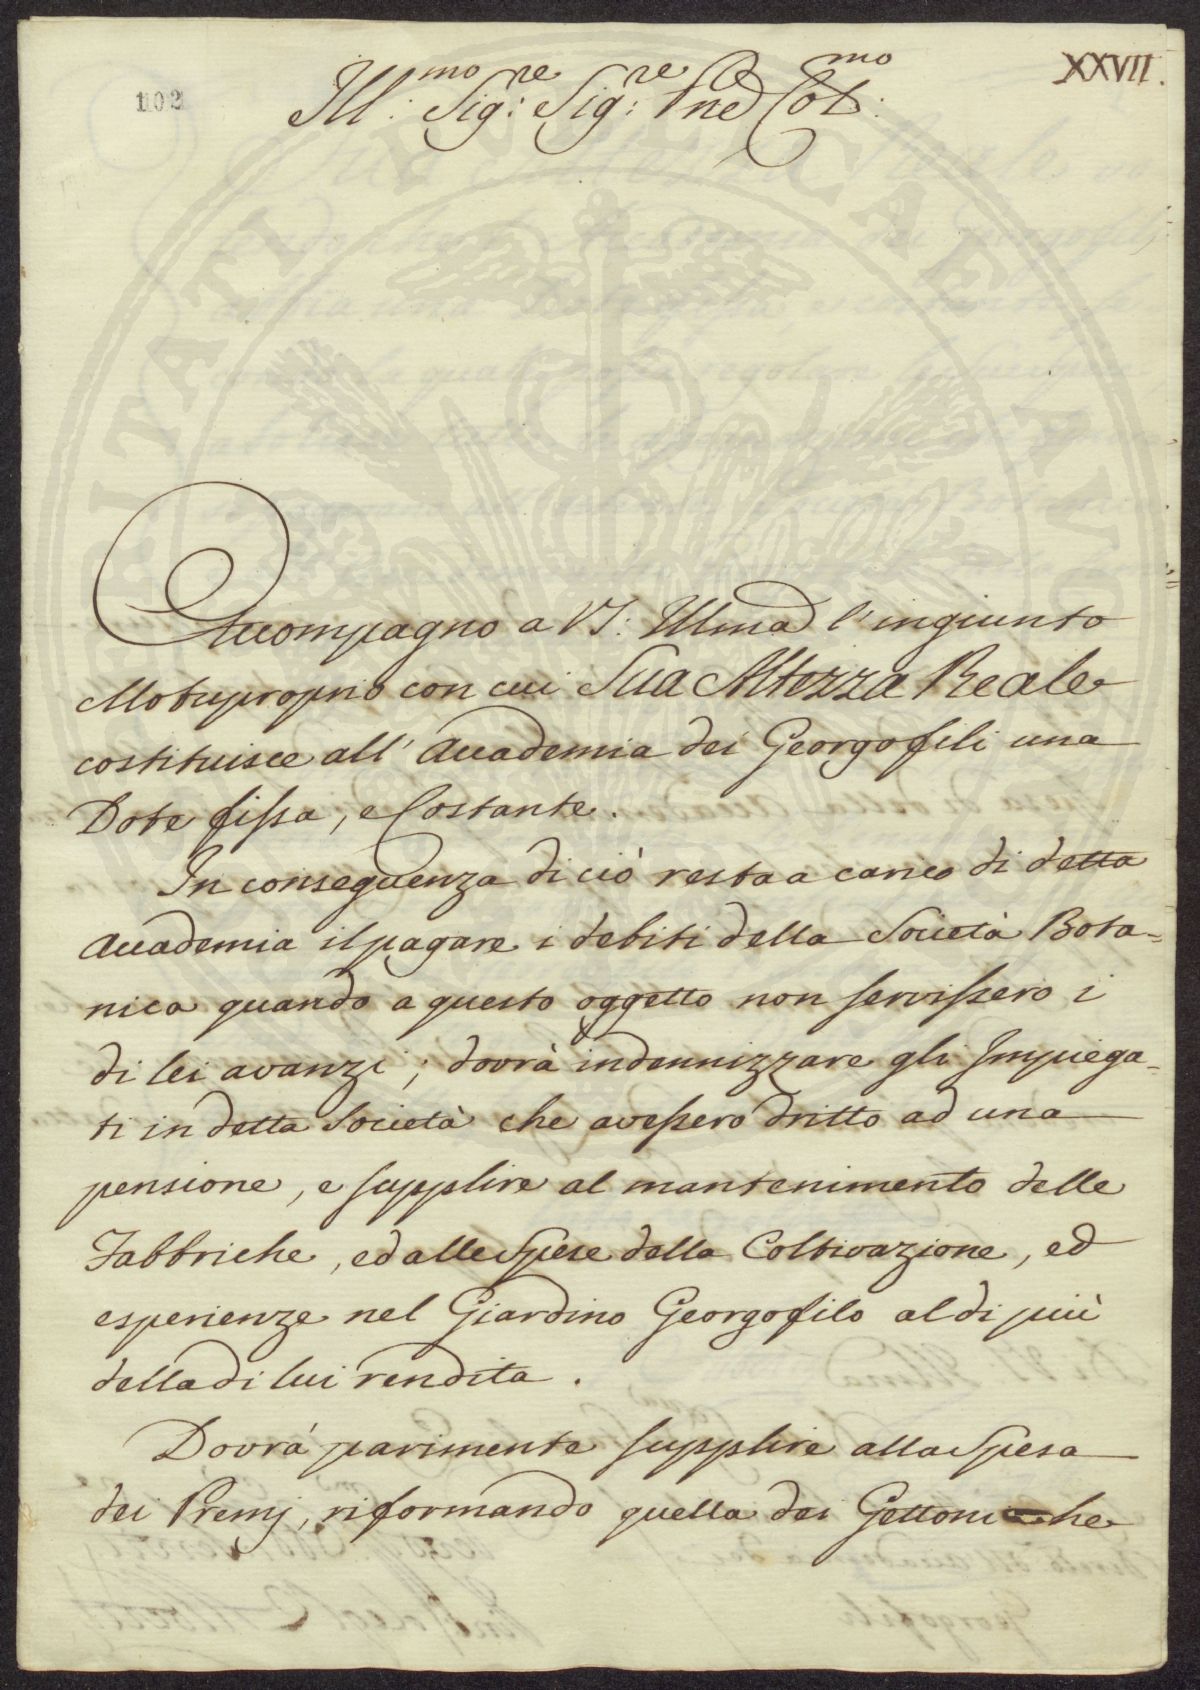 102
XXVII.
Ill:mo Sig:re Sig:re Pne Col:mo
Accompagno a VS: Illma l'ingiunto
Motuproprio con cui Sua Altezza Reale
costituisce all' Accademia dei Georgofili una
Dote fissa, e Costante.
In conseguenza di ciò resta a carico di detta
Accademia il pagare i debiti della Società Bota=
nica quando a questo oggetto non servissero i
di lei avanzi; dovrà indennizzare gli Impiega=
ti in detta Società che avessero dritto ad una
pensione, e supplire al mantenimento delle
Fabbriche, ed alle Spese della Coltivazione, ed
esperienze nel Giardino Georgofilo al di più
della di lui rendita.
Dovrà parimente supplire alla Spesa
dei Premj, riformando quella dei Gettoni che